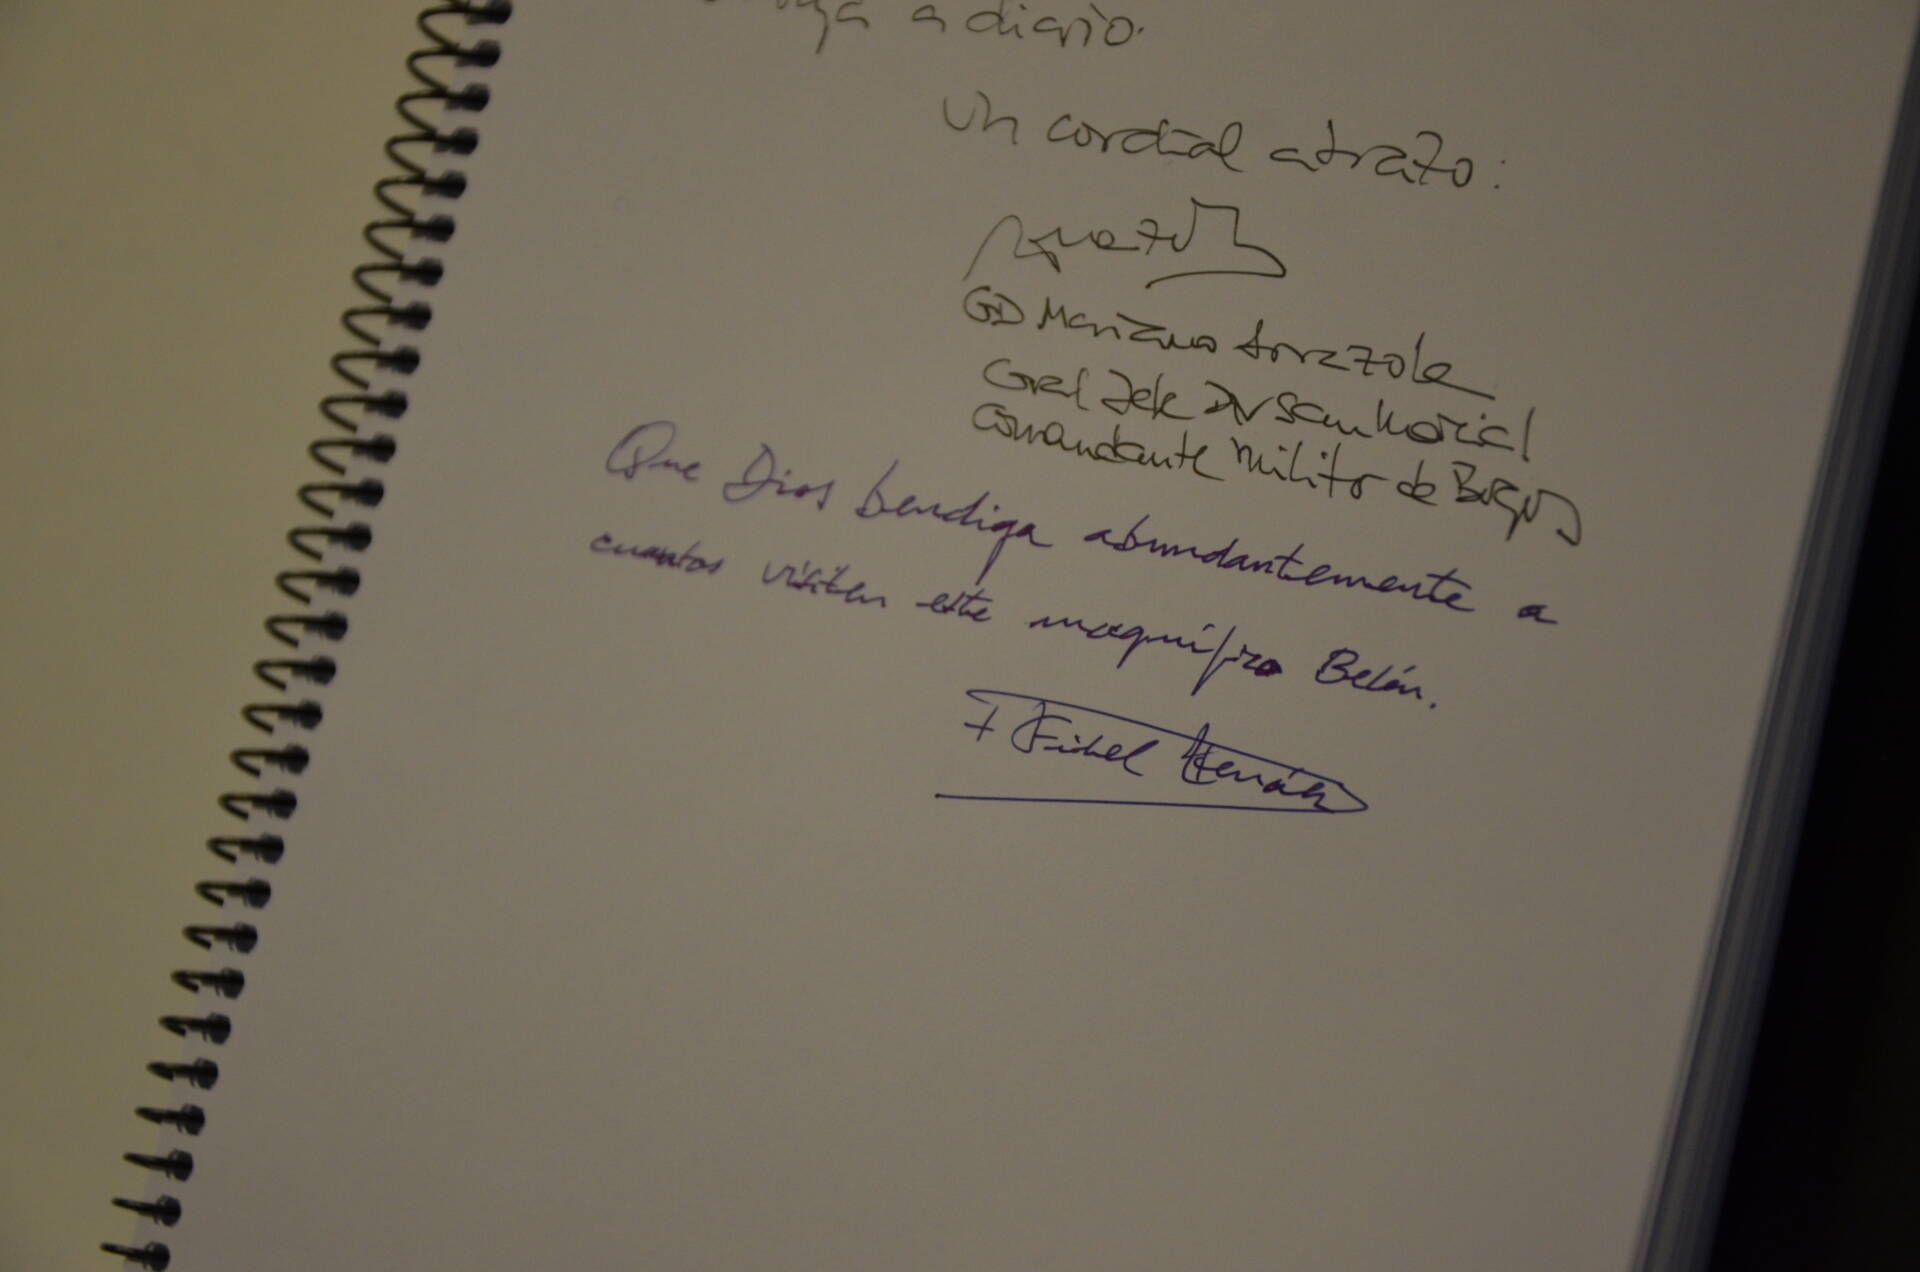 a diario.
Un cordial abrazo:
GD Mariano Arrazola
Gral Jefe DV San Marcial
Comandante Militar de Burgos
Que Dios bendiga abundantemente a
cuantos visiten este magnífico Belén.
+ Fidel Herráez